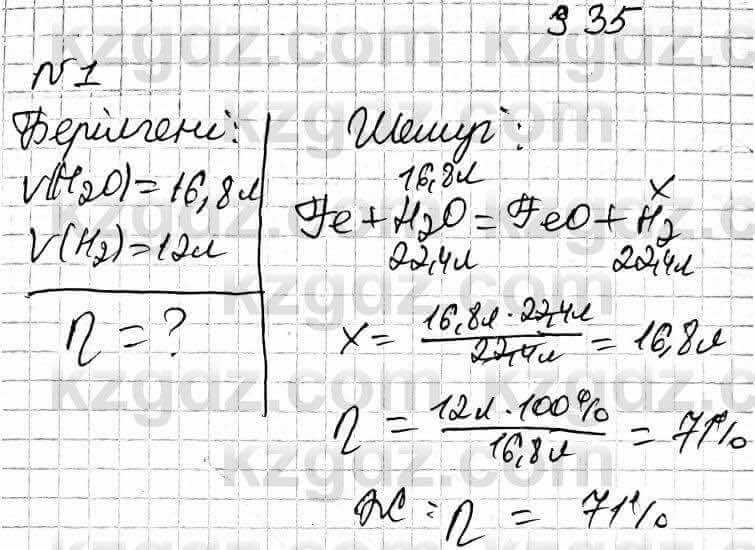 § 35
№1
Берілгені:
V(H₂O)=16,8л
V(H₂)=12л
η=?
Шешуі:
16,8л x
Fe+H₂O=FeO+H₂
22,4л 22,4л
x= 16,8л·22,4л / 22,4л = 16,8л
η = 12л·100% / 16,8л = 71%
Ж: η = 71%
kzgdz.com